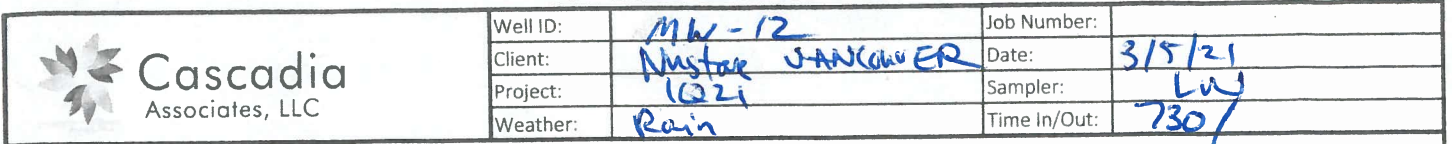 Cascadia
Associates, LLC
Well ID: MW-12 Job Number:
Client: Nustar VANCOUVER Date: 3/5/21
Project: 1Q21 Sampler: LW
Weather: Rain Time In/Out: 730/